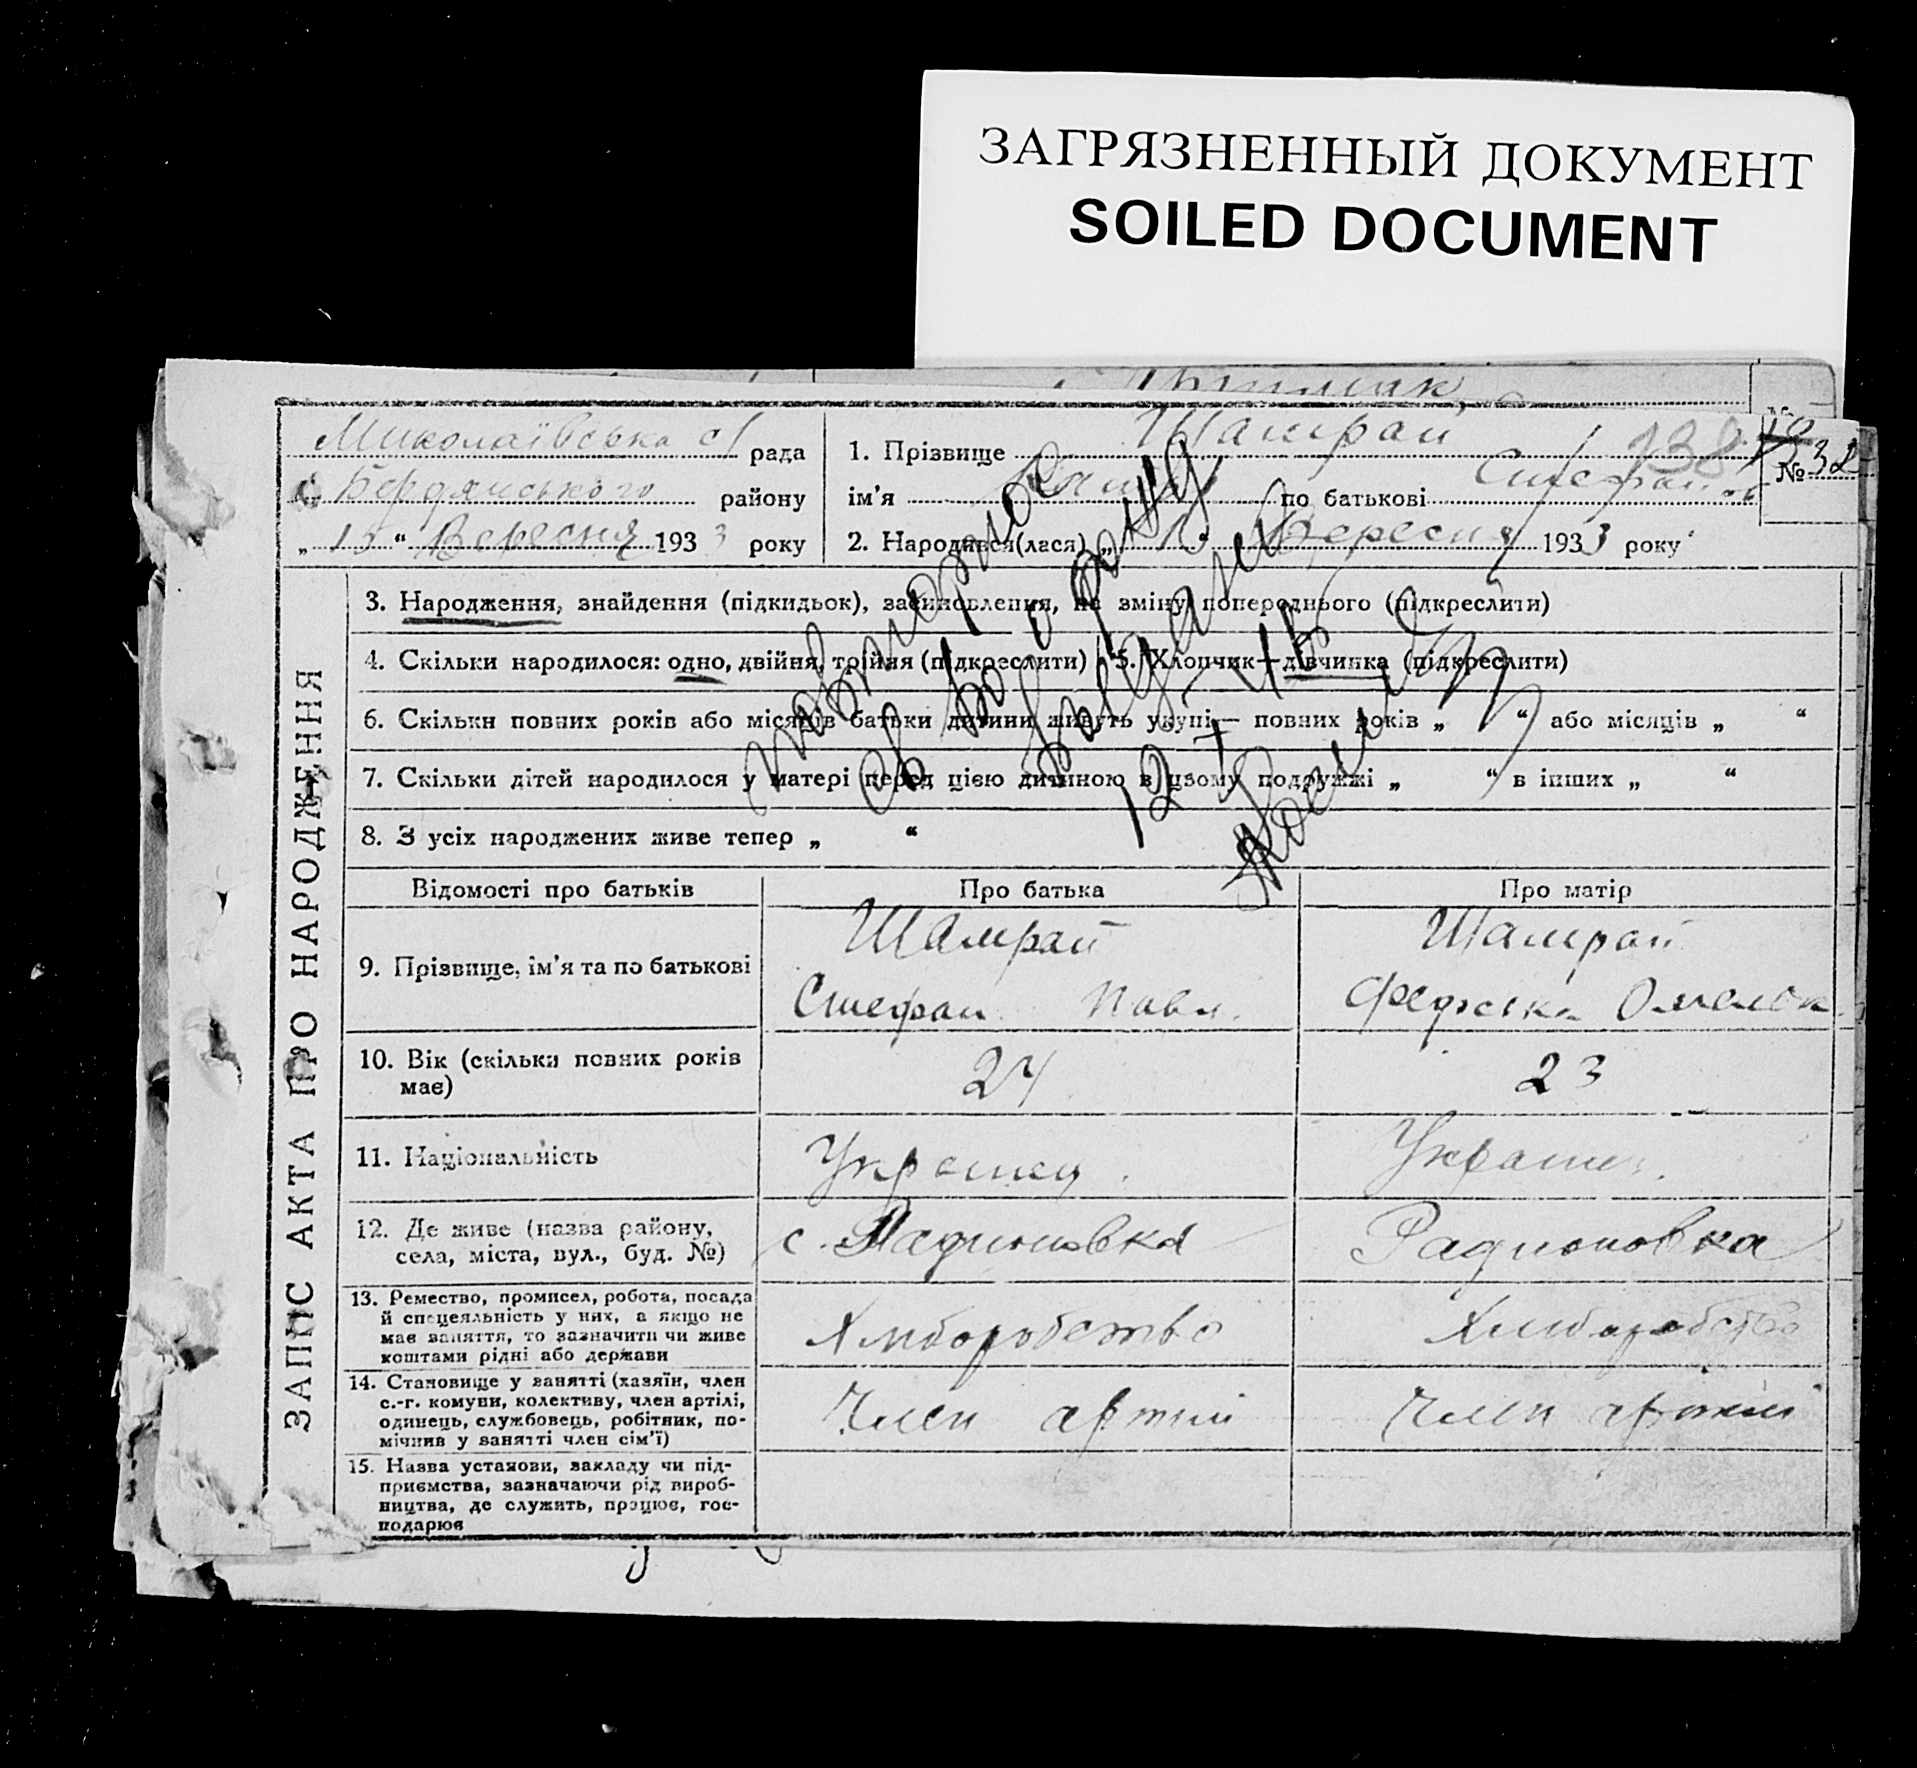 ЗАГРЯЗНЕННЫЙ ДОКУМЕНТ
SOILED DOCUMENT
Миколаївська с/ рада
Бердянського району
„ 15 “ Вересня 1933 року
1. Прізвище Шамрай
ім'я по батькові Стефан
138
№ 32
2. Народився(лася) „ “ Вересня 1933 року
ЗАПИС АКТА ПРО НАРОДЖЕННЯ
3. Народження, знайдення (підкидьок), засиновлення, на зміну попереднього (підкреслити)
4. Скільки народилося: одно, двійня, трійня (підкреслити)
5. Хлопчик—дівчинка (підкреслити)
6. Скільки повних років або місяців батьки дитини живуть укупі— повних років „ “ або місяців „ “
7. Скільки дітей народилося у матері перед цією дитиною в цьому подружжі „ “ в інших „ “
8. З усіх народжених живе тепер „ “
повторное
св во о рожд
выдано
12
Відомості про батьків
Про батька
Про матір
9. Прізвище, ім'я та по батькові
Шамрай
Стефан Павл.
Шамрай
Федоська Омельк.
10. Вік (скільки повних років
має)
24
23
11. Національність
Украинец
Украин.
12. Де живе (назва району,
села, міста, вул., буд. №)
с. Радионовка
Радионовка
13. Ремество, промисел, робота, посада
й спецеяльність у них, а якщо не
має заняття, то зазначити чи живе
коштами рідні або держави
Хліборобство
Хліборобство
14. Становище у занятті (хазяїн, член
с.-г. комуни, колективу, член артілі,
одинець, службовець, робітник, по-
мічнив у занятті член сім'ї)
Член артілі
Член артілі
15. Назва установи, закладу чи під-
приємства, зазначаючи рід вироб-
ництва, де служить, працює, гос-
подарює